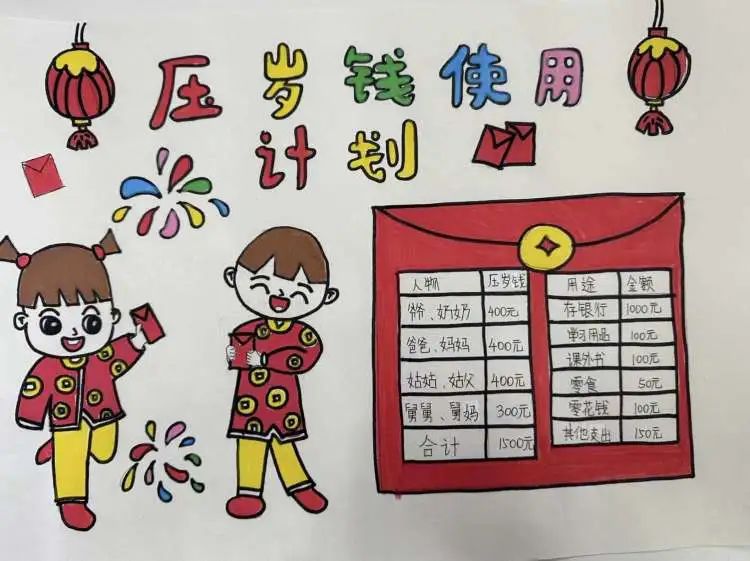 压岁钱使用
计划
人物 压岁钱
爷、奶奶 400元
爸爸、妈妈 400元
姑姑、姑父 400元
舅舅、舅妈 300元
合计 1500元
用途 金额
存银行 1000元
学习用品 100元
课外书 100元
零食 50元
零花钱 100元
其他支出 150元